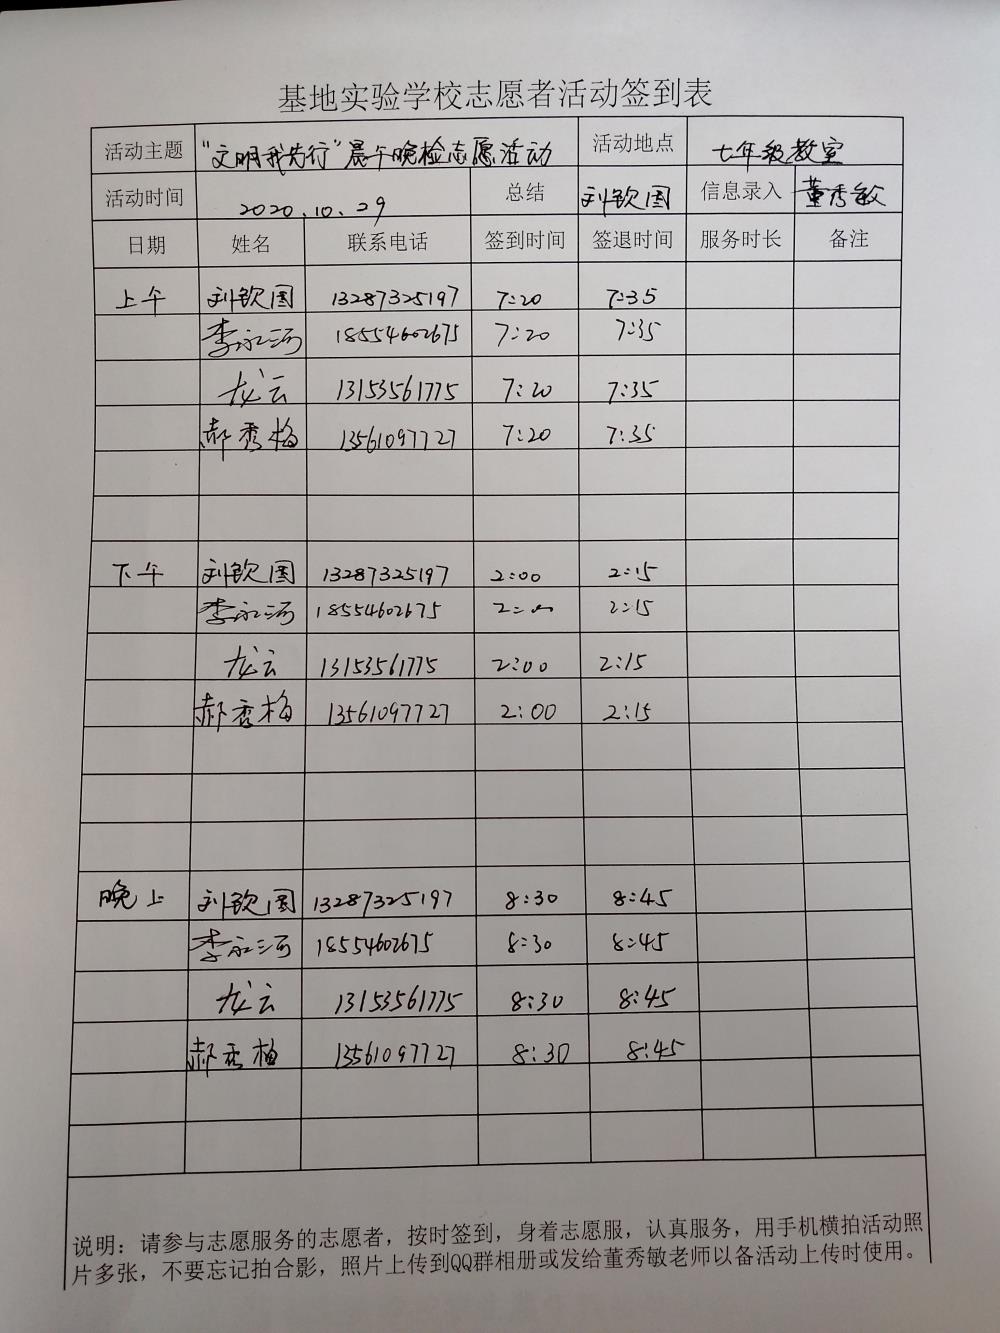 基地实验学校志愿者活动签到表
活动主题 "文明我先行"晨午晚检志愿活动 活动地点 七年级教室
活动时间 2020.10.29 总结 刘钦国 信息录入 董秀敏
日期 姓名 联系电话 签到时间 签退时间 服务时长 备注
上午 刘钦国 13287325197 7:20 7:35
李永河 18554602675 7:20 7:35
龙云 13153561775 7:20 7:35
郝秀梅 13561097727 7:20 7:35
下午 刘钦国 13287325197 2:00 2:15
李永河 18554602675 2:00 2:15
龙云 13153561775 2:00 2:15
郝秀梅 13561097727 2:00 2:15
晚上 刘钦国 13287325197 8:30 8:45
李永河 18554602675 8:30 8:45
龙云 13153561775 8:30 8:45
郝秀梅 13561097727 8:30 8:45
说明：请参与志愿服务的志愿者，按时签到，身着志愿服，认真服务，用手机横拍活动照
片多张，不要忘记拍合影，照片上传到QQ群相册或发给董秀敏老师以备活动上传时使用。